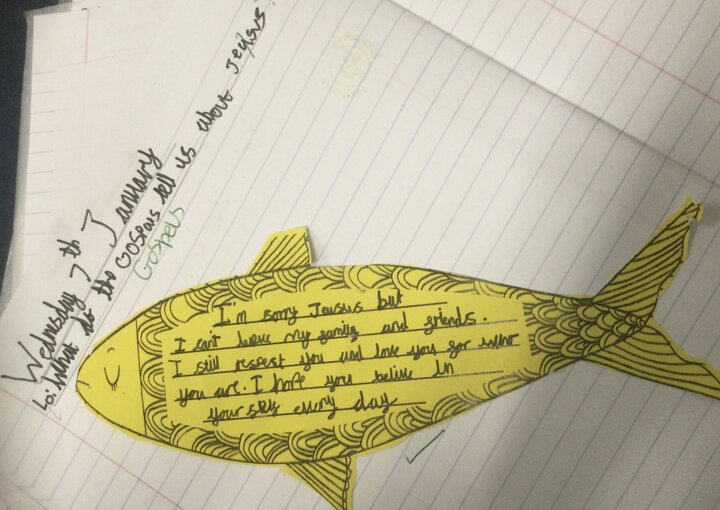 Wednesday 7th January
Lo: What do the Gospels tell us about Jesus?
Gospels
I'm sorry Jeusus but
I can't leave my family and friends.
I still respect you and love you for who
you are. I hope you belive in
your self every day